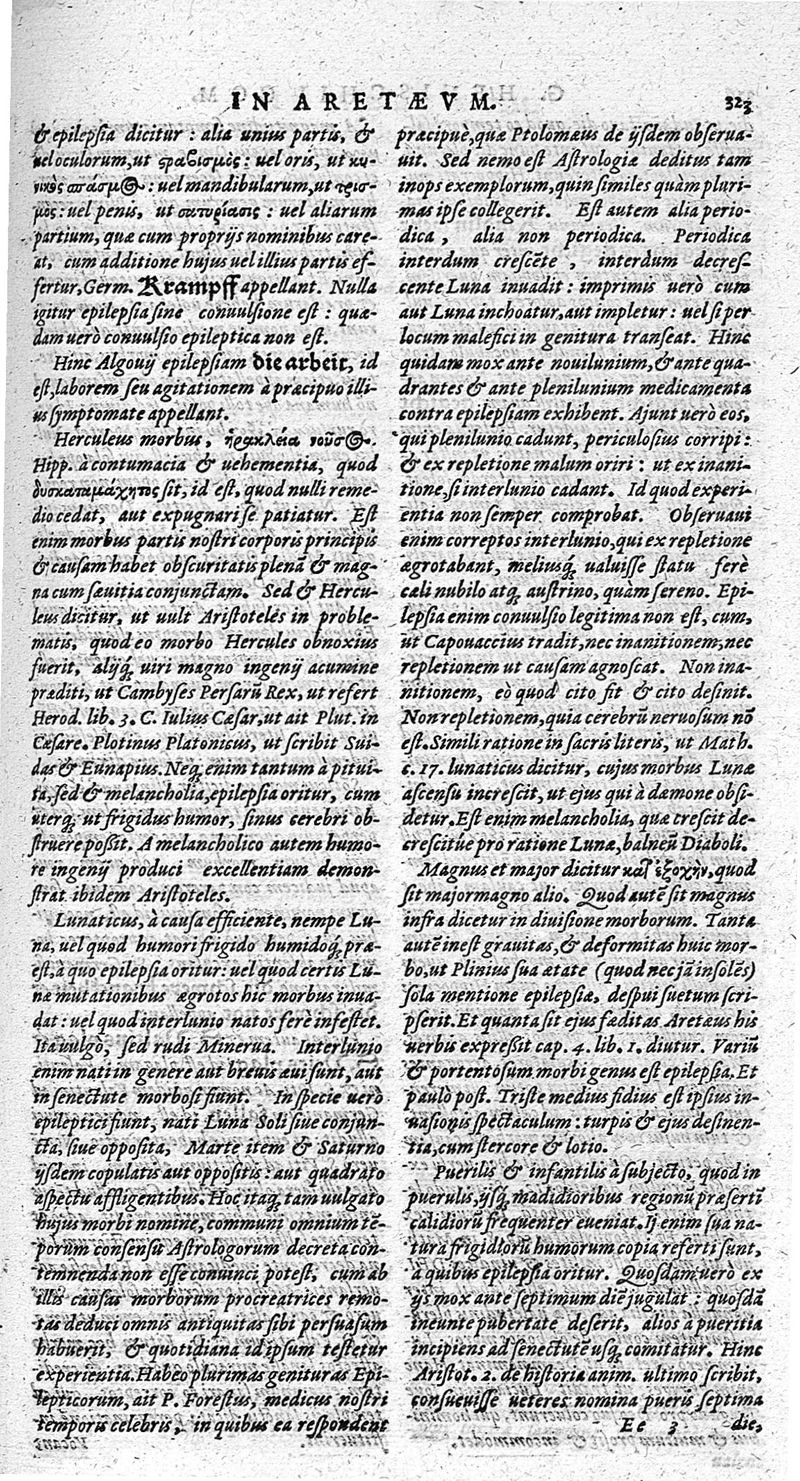 IN ARETÆVM. 323
& epilepsia dicitur: alia unius partis, &
uel oculorum, ut ςραβισμὸς: uel oris, ut κυ-
νικὸς σπάσμος: uel mandibularum, ut τρισ-
μὸς: uel penis, ut σατυρίασις: uel aliarum
partium, quæ cum proprijs nominibus care-
at, cum additione hujus uel illius partis ef-
fertur, Germ. Krampff appellant. Nulla
igitur epilepsia sine conuulsione est: quæ-
dam uerò conuulsio epileptica non est.
Hinc Algouij epilepsiam die arbeit, id
est, laborem seu agitationem à præcipuo illi-
us symptomate appellant.
Herculeus morbus, ἡρακλεία νοῦσος.
Hipp. à contumacia & uehementia, quod
δυσκαταμάχητος sit, id est, quod nulli reme-
dio cedat, aut expugnari se patiatur. Est
enim morbus partis nostri corporis principis
& causam habet obscuritatis plenā & mag-
na cum sæuitia conjunctam. Sed & Hercu-
leus dicitur, ut uult Aristoteles in proble-
matis, quod eo morbo Hercules obnoxius
fuerit, alijq; uiri magno ingenij acumine
præditi, ut Cambyses Persarū Rex, ut refert
Herod. lib. 3. C. Iulius Cæsar, ut ait Plut. in
Cæsare. Plotinus Platonicus, ut scribit Sui-
das & Eunapius. Neq; enim tantum à pitui-
ta, sed & melancholia, epilepsia oritur, cum
uterq; ut frigidus humor, sinus cerebri ob-
struere possit. A melancholico autem humo-
re ingenij produci excellentiam demon-
strat ibidem Aristoteles.
Lunaticus, à causa efficiente, nempe Lu-
na, uel quod humori frigido humidoq; præ-
est, à quo epilepsia oritur: uel quod certis Lu-
næ mutationibus ægrotos hic morbus inua-
dat: uel quod interlunio natos ferè infestet.
Ita uulgò, sed rudi Minerua. Interlunio
enim nati in genere aut breuis æui sunt, aut
in senectute morbosi fiunt. In specie uerò
epileptici fiunt, nati Luna Soli siue conjun-
cta, siue opposita, Marte item & Saturno
ijsdem copulatis aut oppositis: aut quadrato
aspectu affligentibus. Hoc itaq; tam uulgato
hujus morbi nomine, communi omnium tē-
porum consensu Astrologorum decreta con-
temnenda non esse conuinci potest, cum ab
illis causas morborum procreatrices remo-
tas deduci omnis antiquitas sibi persuasum
habuerit, & quotidiana id ipsum testetur
experientia. Habeo plurimas genituras Epi-
lepticorum, ait P. Forestus, medicus nostri
temporis celebris, in quibus ea respondent
præcipuè, quæ Ptolomæus de ijsdem obserua-
uit. Sed nemo est Astrologiæ deditus tam
inops exemplorum, quin similes quàm pluri-
mas ipse collegerit. Est autem alia perio-
dica, alia non periodica. Periodica
interdum crescēte, interdum decres-
cente Luna inuadit: imprimis uerò cum
aut Luna inchoatur, aut impletur: uel si per
locum malefici in genitura transeat. Hinc
quidam mox ante nouilunium, & ante qua-
drantes & ante plenilunium medicamenta
contra epilepsiam exhibent. Ajunt uerò eos,
qui plenilunio cadunt, periculosius corripi:
& ex repletione malum oriri: ut ex inani-
tione, si interlunio cadant. Id quod experi-
entia non semper comprobat. Obseruaui
enim correptos interlunio, qui ex repletione
ægrotabant, meliusq; ualuisse statu ferè
cæli nubilo atq; austrino, quàm sereno. Epi-
lepsia enim conuulsio legitima non est, cum,
ut Capouaccius tradit, nec inanitionem, nec
repletionem ut causam agnoscat. Non ina-
nitionem, eò quod cito fit & cito desinit.
Non repletionem, quia cerebrū neruosum nō
est. Simili ratione in sacris literis, ut Math.
c. 17. lunaticus dicitur, cujus morbus Lunæ
ascensu increscit, ut ejus qui à dæmone obsi-
detur. Est enim melancholia, quæ crescit de-
crescitúe pro ratione Lunæ, balneū Diaboli.
Magnus et major dicitur κατ' ἐξοχὴν, quod
sit major magno alio. Quod autē sit magnus
infra dicetur in diuisione morborum. Tanta
autē inest grauitas, & deformitas huic mor-
bo, ut Plinius sua ætate (quod nec jā insolēs)
sola mentione epilepsiæ, despui suetum scri-
pserit. Et quanta sit ejus fæditas Aretæus his
uerbis expressit cap. 4. lib. 1. diutur. Variū
& portentosum morbi genus est epilepsia. Et
paulò post. Triste medius fidius est ipsius in-
uasionis spectaculum: turpis & ejus desinen-
tia, cum stercore & lotio.
Puerilis & infantilis à subjecto, quod in
puerulis, ijsq; madidioribus regionū præsertī
calidiorū frequenter eueniat. Ij enim sua na-
tura frigidiorū humorum copia referti sunt,
à quibus epilepsia oritur. Quosdam uerò ex
ijs mox ante septimum diē jugulat: quosdā
ineunte pubertate deserit, alios à pueritia
incipiens ad senectutē usq; comitatur. Hinc
Aristot. 2. de historia anim. ultimo scribit,
consueuisse ueteres nomina pueris septima
Ee 3 die,